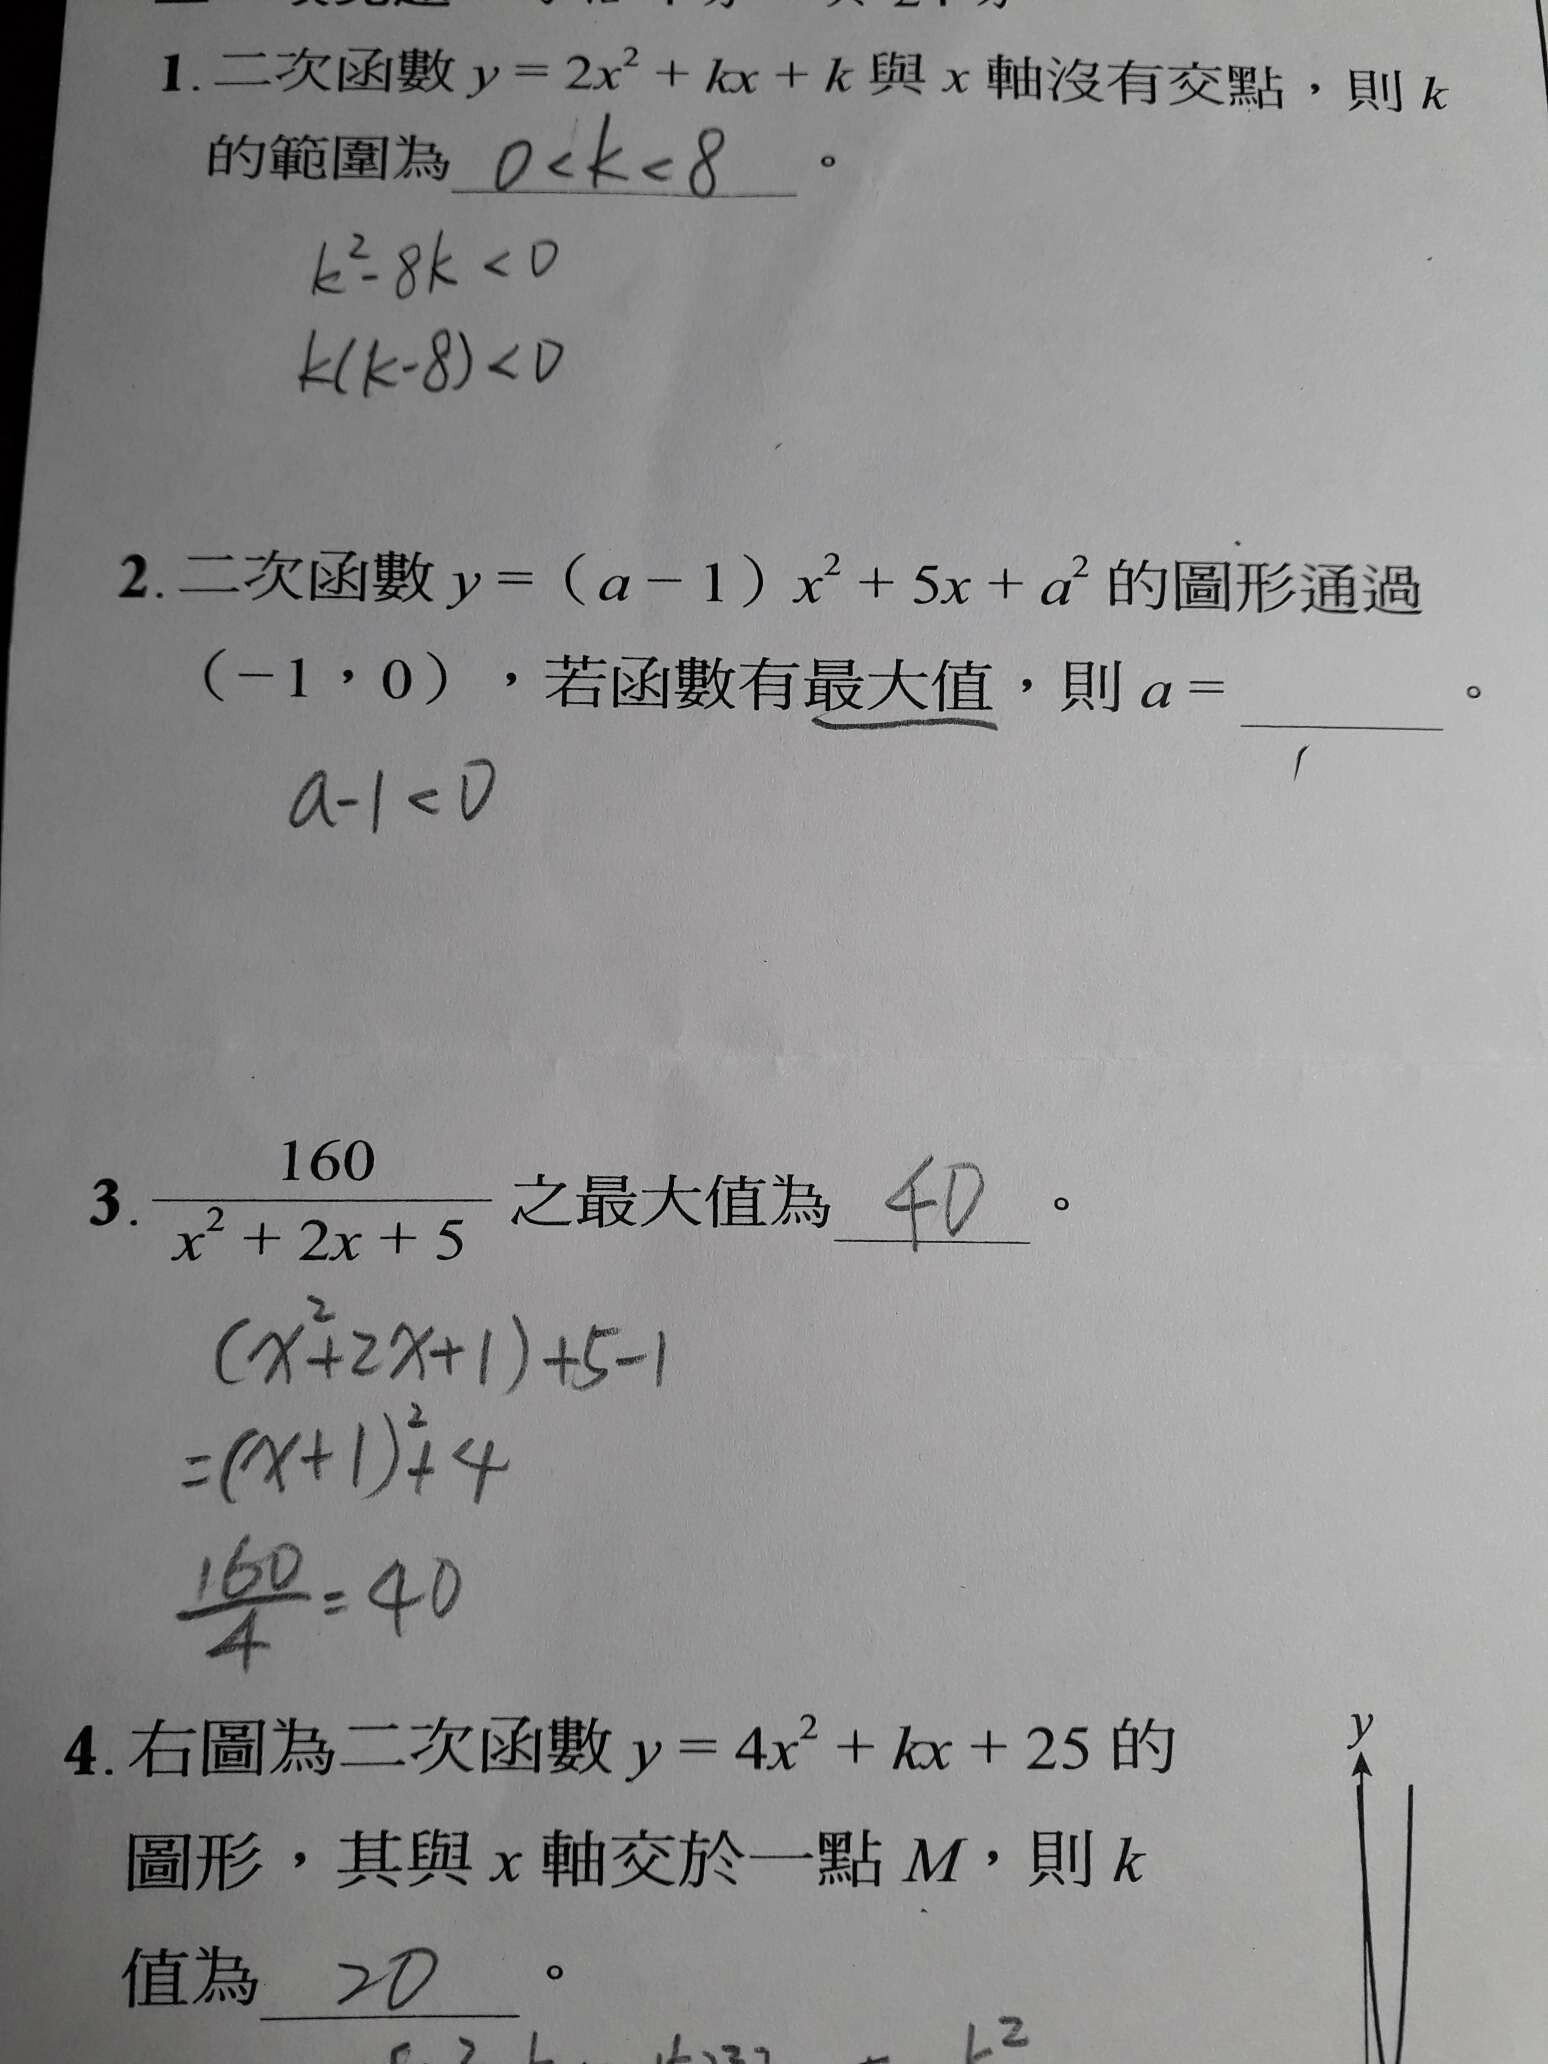 1. 二次函數 y = 2x² + kx + k 與 x 軸沒有交點，則 k
的範圍為 0<k<8 。
k²-8k<0
k(k-8)<0
2. 二次函數 y =（a − 1）x² + 5x + a² 的圖形通過
（−1，0），若函數有最大值，則 a = 。
a-1<0
3. 160/(x² + 2x + 5) 之最大值為 40 。
(x²+2x+1)+5-1
=(x+1)²+4
160/4=40
4. 右圖為二次函數 y = 4x² + kx + 25 的
圖形，其與 x 軸交於一點 M，則 k
值為 20 。
y